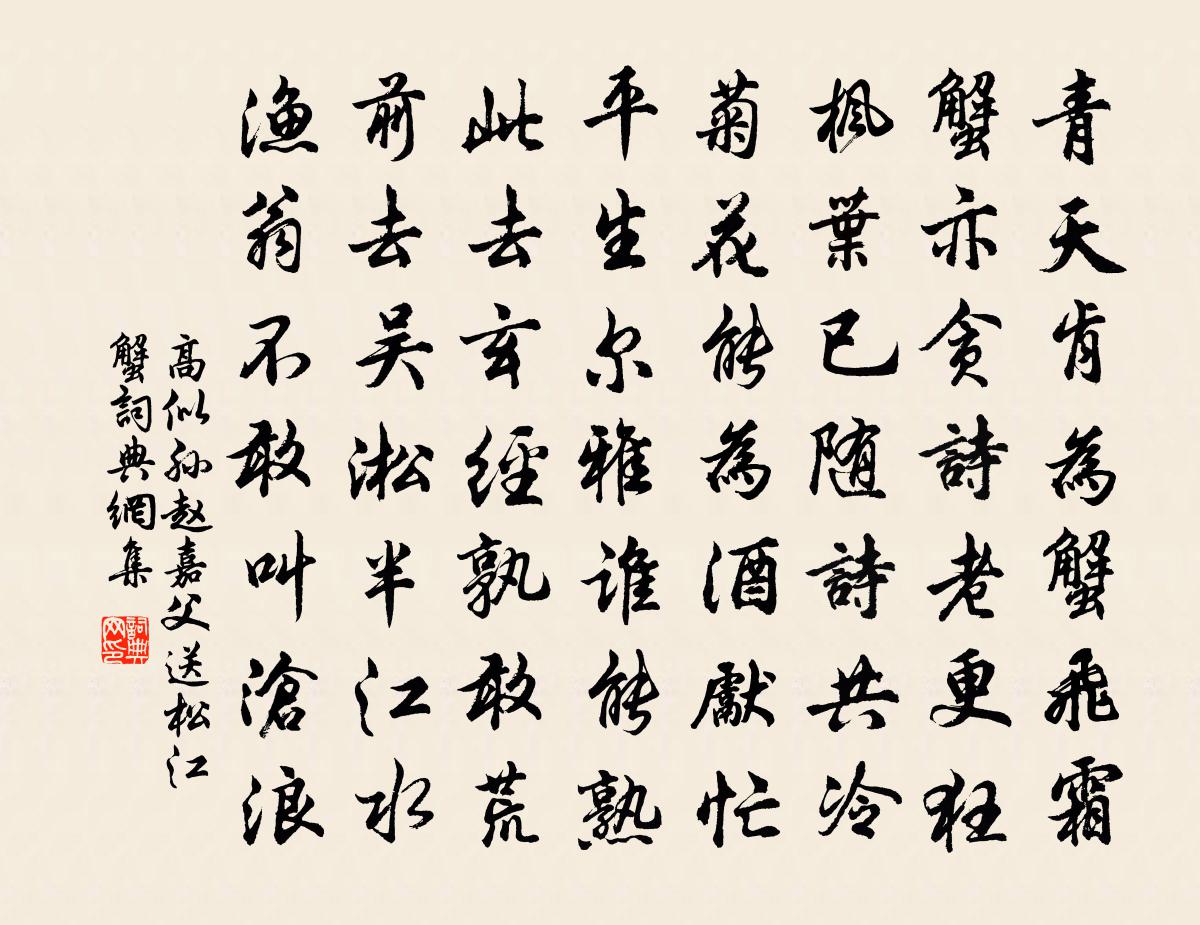 青天肯為蟹飛霜
蟹亦貪詩老更狂
楓葉已随詩共冷
菊花能為酒獻忙
平生尔雅誰能熟
此去玄經孰敢荒
前去吴淞半江水
漁翁不敢叫滄浪
高似孙赵嘉父送松江
蟹詞典網集
詞典网印